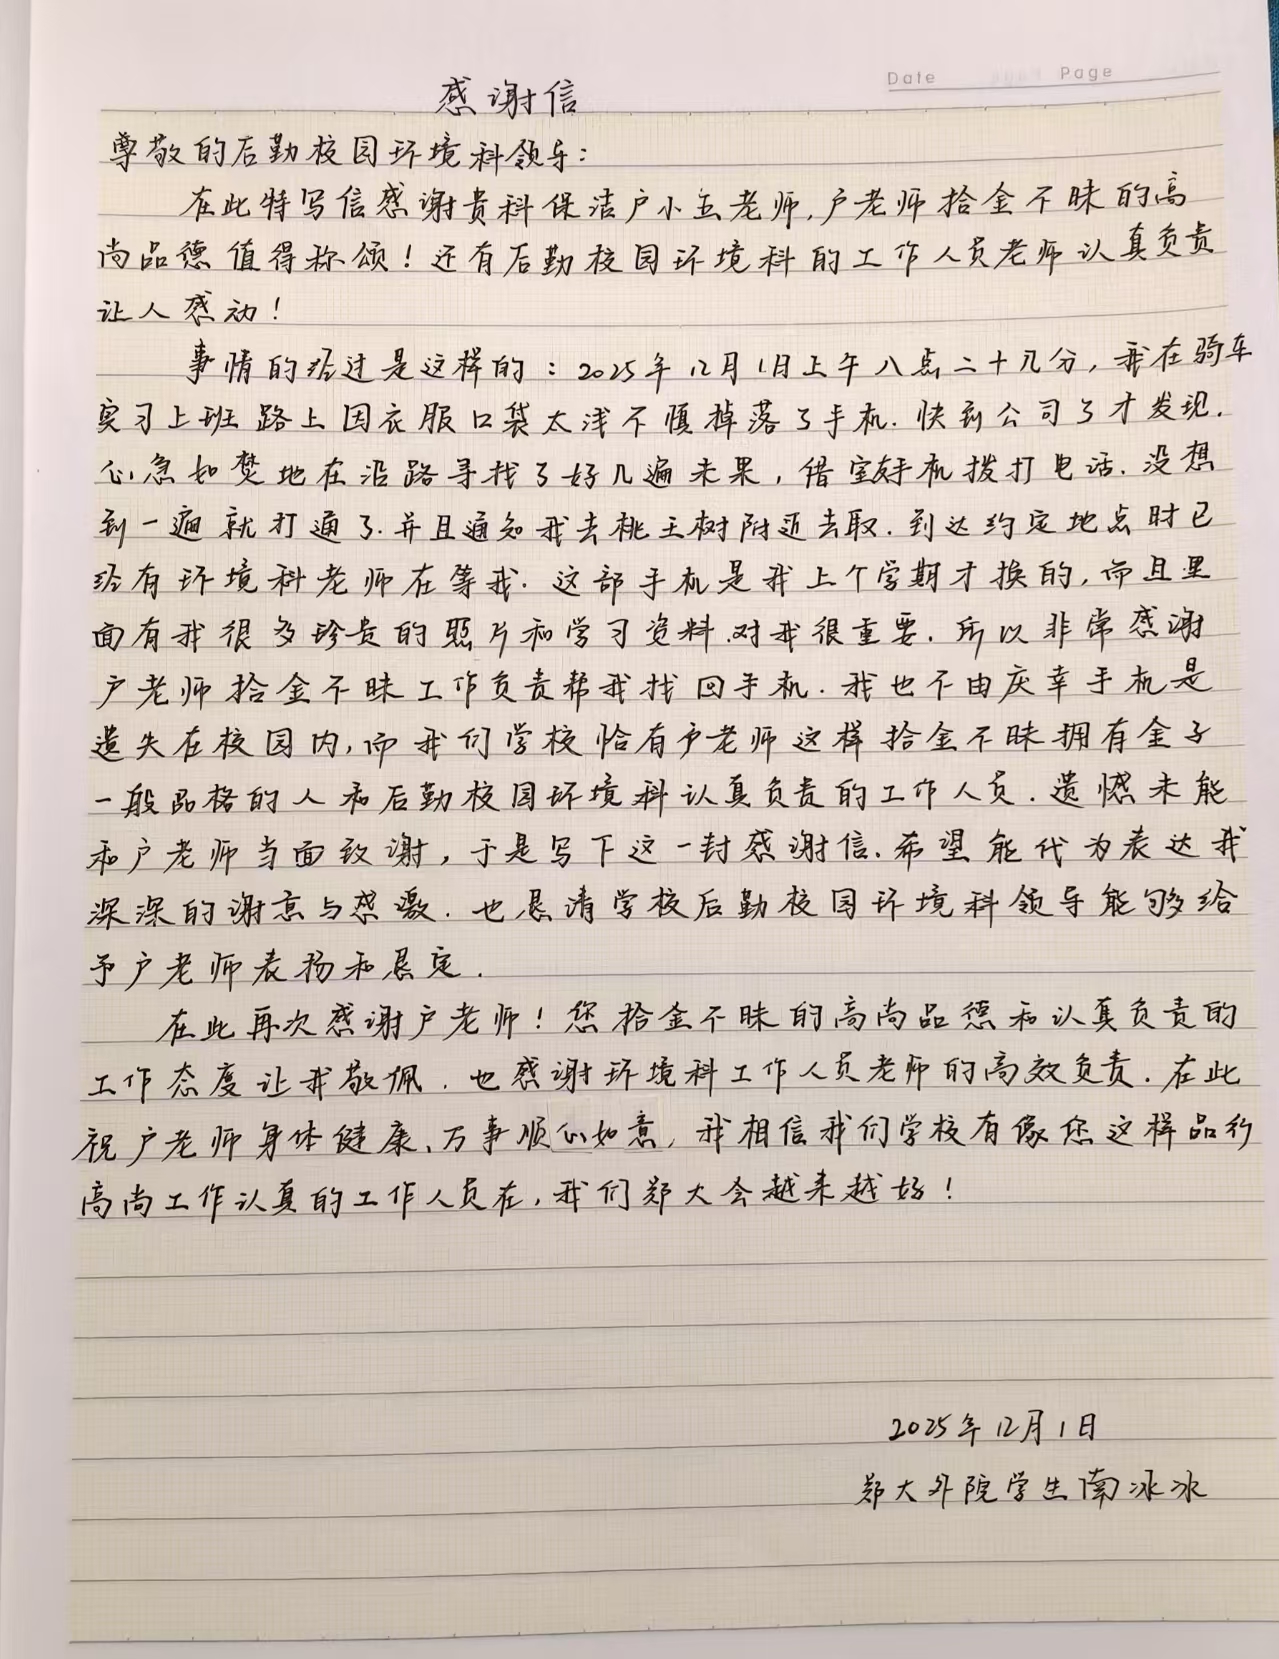 Date Page
感谢信
尊敬的后勤校园环境科领导：
在此特写信感谢贵科保洁户小玉老师,户老师拾金不昧的高
尚品德值得称颂！还有后勤校园环境科的工作人员老师认真负责
让人感动！
事情的经过是这样的：2025年12月1日上午八点二十几分，我在骑车
实习上班路上因衣服口袋太浅不慎掉落了手机.快到公司了才发现.
心急如焚地在沿路寻找了好几遍未果，借室友手机拨打电话.没想
到一遍就打通了.并且通知我去桃王树附近去取.到达约定地点时已
经有环境科老师在等我.这部手机是我上个学期才换的,而且里
面有我很多珍贵的照片和学习资料.对我很重要.所以非常感谢
户老师拾金不昧工作负责帮我找回手机.我也不由庆幸手机是
遗失在校园内,而我们学校恰有户老师这样拾金不昧拥有金子
一般品格的人和后勤校园环境科认真负责的工作人员.遗憾未能
和户老师当面致谢，于是写下这一封感谢信.希望能代为表达我
深深的谢意与感激.也恳请学校后勤校园环境科领导能够给
予户老师表扬和恳定.
在此再次感谢户老师！您拾金不昧的高尚品德和认真负责的
工作态度让我敬佩.也感谢环境科工作人员老师的高效负责.在此
祝户老师身体健康、万事顺心如意,我相信我们学校有像您这样品行
高尚工作认真的工作人员在,我们郑大会越来越好！
2025年12月1日
郑大外院学生南冰冰